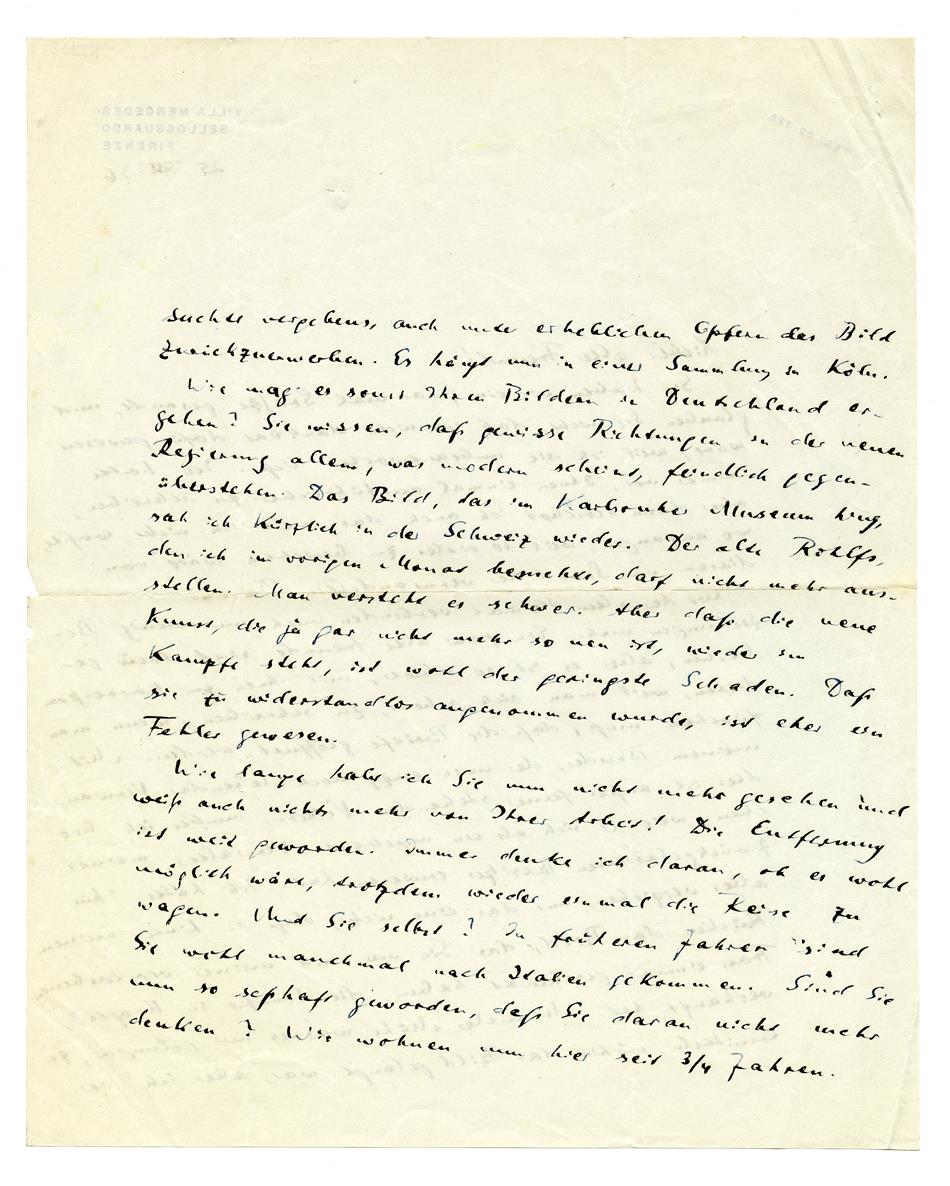 VILLA MERGEDES
BELLOSGUARDO
FIRENZE
suchte vergebens, auch unter erheblichen Opfern das Bild
zurückzuerwerben. Es hängt nun in einer Sammlung in Köln.
Wie mag es sonst Ihren Bildern in Deutschland er-
gehen? Sie wissen, daß gewisse Richtungen in der neuen
Regierung allem, was modern scheint, feindlich gegen-
überstehen. Das Bild, das im Karlsruher Museum hing,
sah ich kürzlich in der Schweiz wieder. Der alte Rohlfs,
den ich im vorigen Monat besuchte, darf nicht mehr aus-
stellen. Man versteht es schwer. Aber daß die neue
Kunst, die ja gar nicht mehr so neu ist, wieder im
Kampfe steht, ist wohl der geringste Schaden. Daß
sie zu widerstandlos angenommen wurde, ist eher ein
Fehler gewesen.
Wie lange habe ich Sie nun nicht mehr gesehen und
weiß auch nichts mehr von Ihrer Arbeit! Die Entfernung
ist weit geworden. Immer denke ich daran, ob es wohl
möglich wäre, trotzdem wieder einmal die Reise zu
wagen. Und Sie selbst? In früheren Jahren sind
Sie wohl manchmal nach Italien gekommen. Sind Sie
nun so seßhaft geworden, daß Sie daran nicht mehr
denken? Wir wohnen nun hier seit 3/4 Jahren.